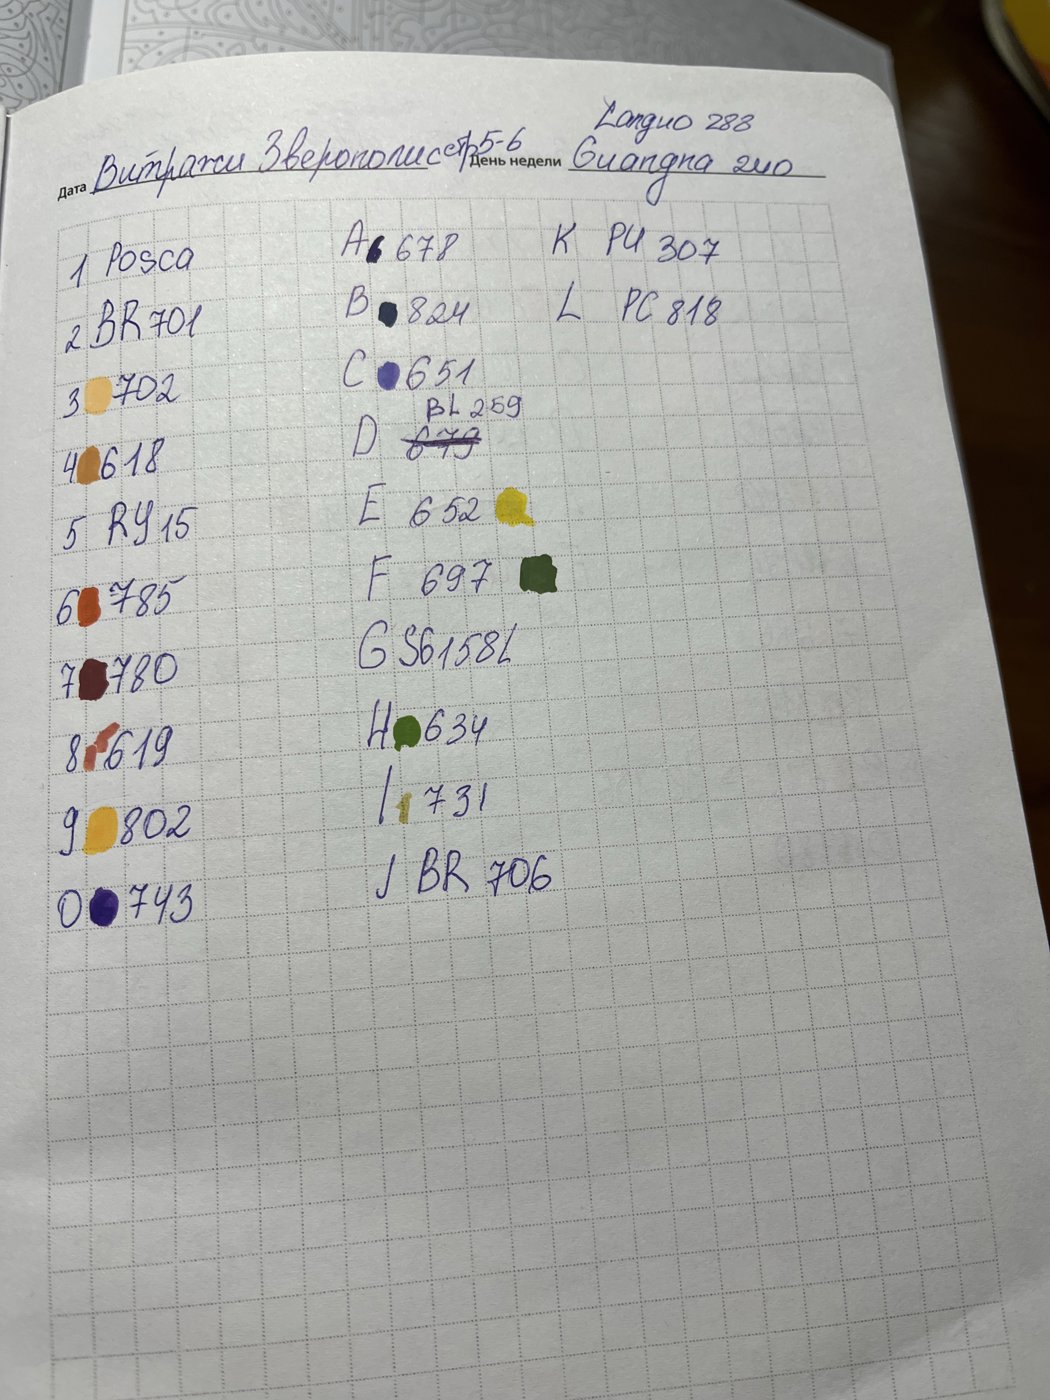 Languo 288
Дата Витражи Зверополис стр5-6 День недели Guangna 240
1 Posca
2 BR 701
3 702
4 618
5 RY 15
6 785
7 780
8 619
9 802
0 743
A 678
B 824
C 651
BL 259
D 679
E 652
F 697
G S6158L
H 634
I 731
J BR 706
K PU 307
L PC 818